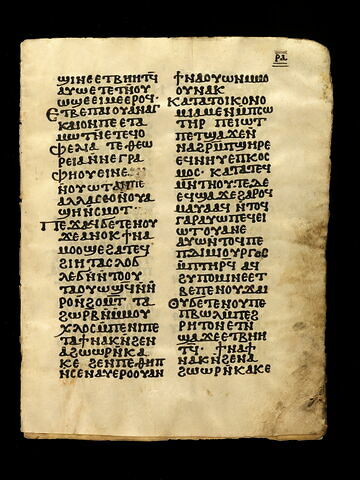 ⲣⲁ
ϣⲓⲛⲉⲉⲧⲃⲏⲏⲧϥ
ⲁⲩⲱⲉⲧⲉⲧⲛⲟⲩ
ⲱϣⲉⲉⲓⲙⲉⲉⲣⲟϥ·
ⲉⲧⲃⲉⲡⲁⲓⲟⲩⲁⲛⲁⲅ
ⲕⲁⲓⲟⲛⲡⲉⲉⲧⲁ
ⲙⲱⲧⲛⲉⲧⲉϭⲟ
ⲫⲉⲗⲓⲁ ⲧⲉⲑⲉⲱ
ⲣⲉⲓⲁⲛⲛⲉⲅⲣⲁ
ⲫⲏⲟⲩⲉⲓⲛⲉ
ⲛⲟⲩⲱⲧⲁⲛⲡⲉ
ⲁⲗⲗⲁⲥⲉⲟⲛⲟⲩⲁ
ϣⲏⲛⲥⲙⲟⲧ·
ⲡⲉϫⲁϥϭⲉⲧⲉⲛⲟⲩ
ϫⲉⲁⲛⲟⲕϯⲛⲁ
ⲙⲟⲟϣⲉϩⲁⲧⲉϥ
ϩⲓⲏⲧⲁⲥⲗⲟϭ
ⲗⲉϭⲛⲛⲧⲟⲟⲩ
ⲧⲁⲟⲩⲱϣϥⲛⲛ
ⲣⲟⲛϩⲟⲙⲧ ⲧⲁ
ϩⲱⲣⲃⲛⲙⲙⲟ
ⲭⲗⲟⲥⲙⲡⲉⲛⲓⲡⲉ
ⲧⲁϯⲛⲁⲕⲛϩⲉⲛ
ⲁϩⲱⲱⲣⲛⲕⲁ
ⲕⲉ ϩⲉⲛⲡⲉⲑⲏⲡ
ⲛⲥⲉⲛⲁⲩⲉⲣⲟⲟⲩⲁⲛ
ϯⲛⲁⲟⲩⲱⲛⲙⲙⲟ
ⲟⲩⲛⲁⲕ
ⲕⲁⲧⲁⲡⲟⲓⲕⲟⲛⲟ
ⲙⲓⲁⲙⲉⲛⲙⲡⲥⲱ
ⲧⲏⲣ ⲡⲉⲓⲱⲧ
ⲡⲉⲧϣⲁϫⲉⲛ
ⲛⲁϩⲣⲙⲡϣⲏⲣⲉ
ⲉϥⲛⲏⲩⲉⲡⲕⲟⲥ
ⲙⲟⲥ· ⲕⲁⲧⲁⲧⲉϥ
ⲙⲛⲧⲛⲟⲩⲧⲉⲇⲉ
ⲉϥϣⲁϫⲉϩⲁⲣⲟϥ
ⲙⲁⲩⲁⲁϥ ⲛⲧⲟϥ
ⲅⲁⲣⲁⲩⲱⲡⲉϥⲉⲓ
ⲱⲧⲟⲩⲁⲛⲉ
ⲁⲩⲱⲛⲧⲟϥⲡⲉ
ⲡⲇⲏⲙⲓⲟⲩⲣⲅⲟⲥ
ⲙⲡⲧⲏⲣϥ ⲁϥ
ϩⲩⲡⲟⲙⲓⲛⲉⲉⲧ
ⲃⲉⲡⲉⲛⲟⲩϫⲁⲓ
ⲑⲟⲩⲇⲉⲧⲉⲛⲟⲩⲡⲉ
ⲡⲃⲱⲗⲙⲡⲉϩ
ⲣⲏⲧⲟⲛⲉⲧⲛ
ϣⲁϫⲉⲉⲧⲃⲏⲏ
ⲧϥ· ϯⲛⲁϯ
ⲛⲁⲕⲛϩⲉⲛⲁ
ϩⲱⲱⲣⲛⲕⲁⲕⲉ